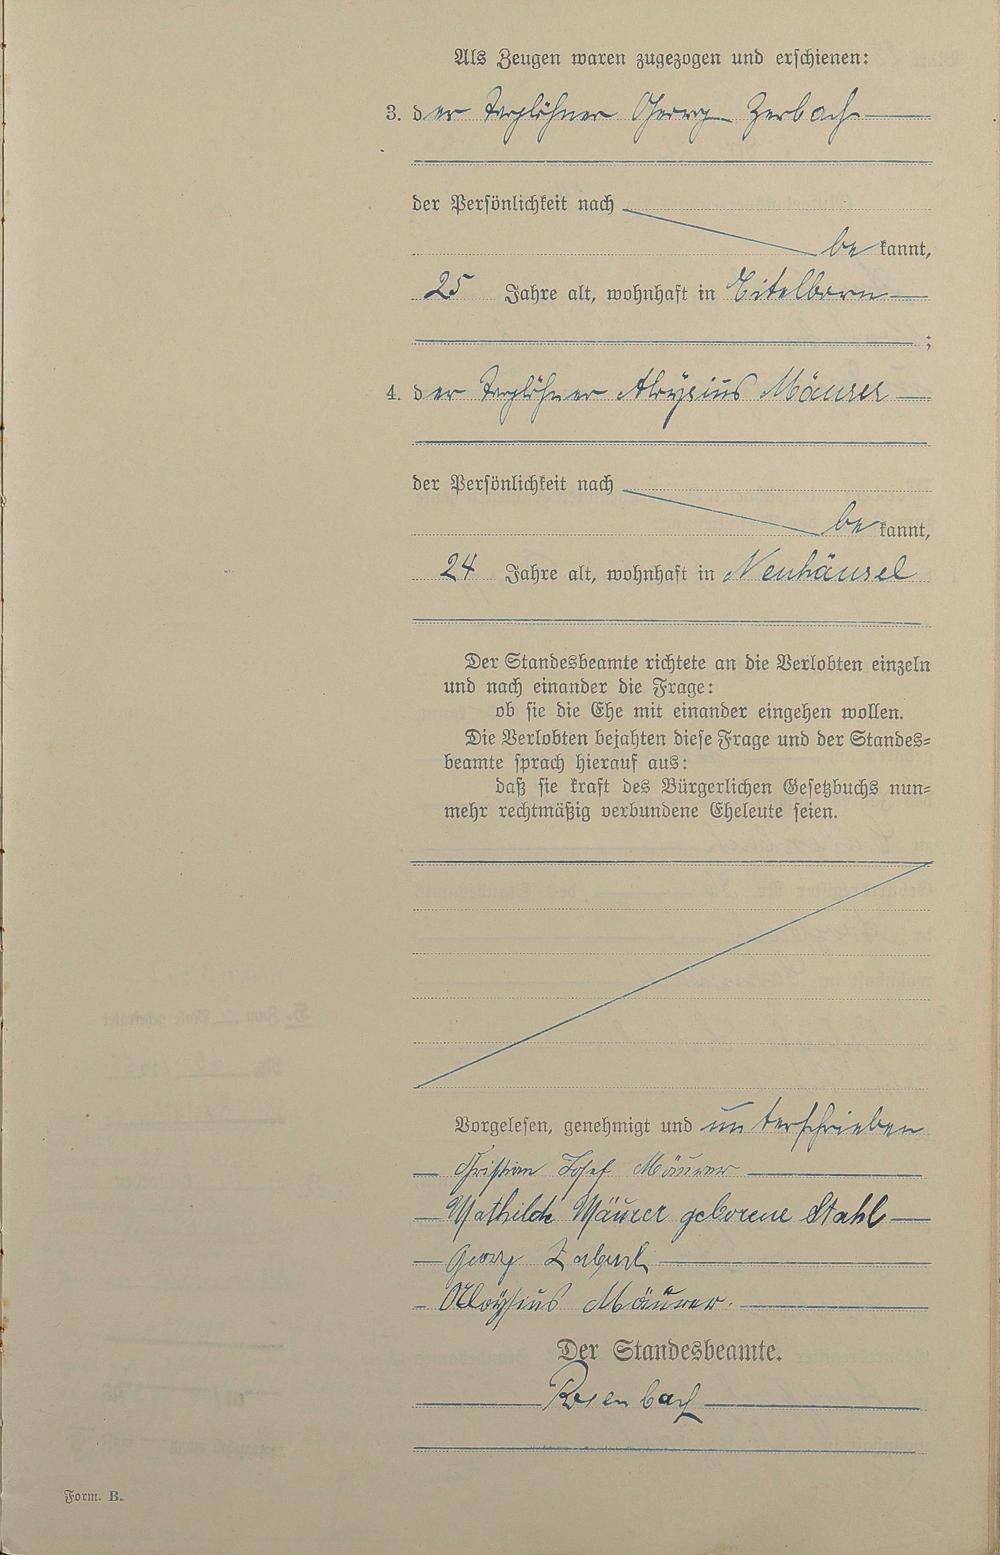 Als Zeugen waren zugezogen und erschienen:
3. der Taglöhner Georg Zerbach
der Persönlichkeit nach
be kannt,
25 Jahre alt, wohnhaft in Eitelborn
;
4. der Taglöhner Aloysius Mäurer
der Persönlichkeit nach
be kannt,
24 Jahre alt, wohnhaft in Neuhäusel
Der Standesbeamte richtete an die Verlobten einzeln
und nach einander die Frage:
ob sie die Ehe mit einander eingehen wollen.
Die Verlobten bejahten diese Frage und der Standes=
beamte sprach hierauf aus:
daß sie kraft des Bürgerlichen Gesetzbuchs nun=
mehr rechtmäßig verbundene Eheleute seien.
Vorgelesen, genehmigt und unterschrieben
Christian Josef Mäurer
Mathilde Mäurer geborene Stahl
Georg Zerbach
Aloysius Mäurer.
Der Standesbeamte.
Rosenbach
Form. B.